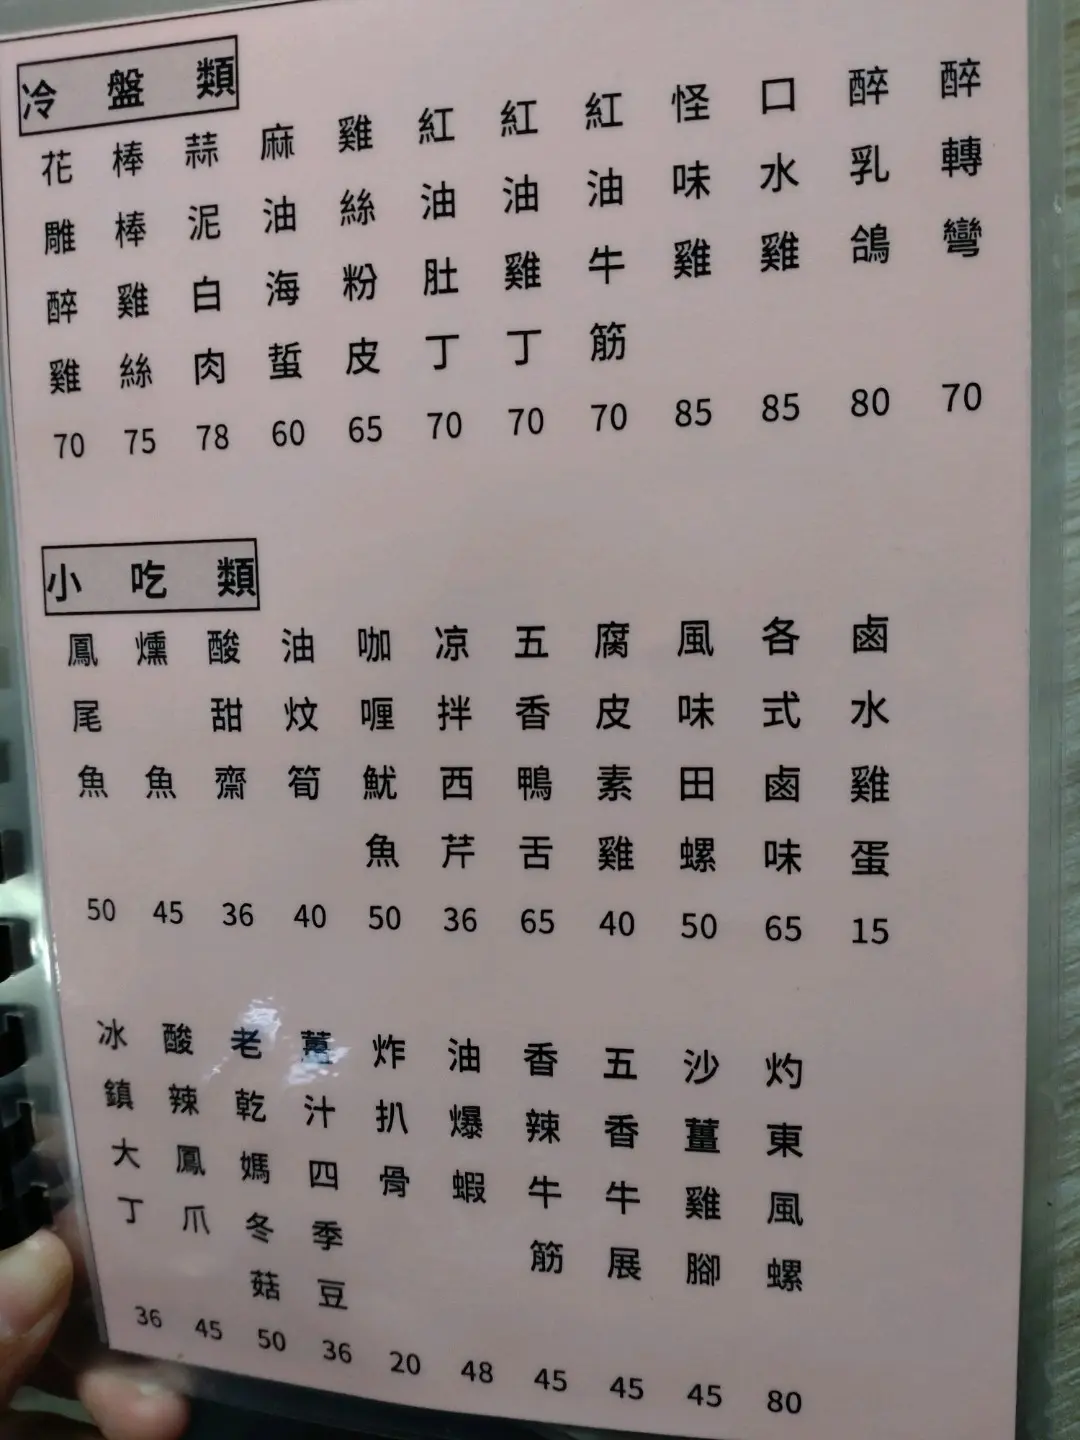 冷盤類
醉轉彎 70
醉乳鴿 80
口水雞 85
怪味雞 85
紅油牛筋 70
紅油雞丁 70
紅油肚丁 70
雞絲粉皮 65
麻油海蜇 60
蒜泥白肉 78
棒棒雞絲 75
花雕醉雞 70
小吃類
鹵水雞蛋 15
各式鹵味 65
風味田螺 50
腐皮素雞 40
五香鴨舌 65
凉拌西芹 36
咖喱魷魚 50
油炆筍 40
酸甜齋 36
燻魚 45
鳳尾魚 50
灼東風螺 80
沙薑雞腳 45
五香牛展 45
香辣牛筋 45
油爆蝦 48
炸扒骨 20
薑汁四季豆 36
老乾媽冬菇 50
酸辣鳳爪 45
冰鎮大丁 36